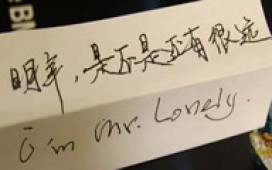 明年，是不是还有很远
i'm Mr. Lonely.